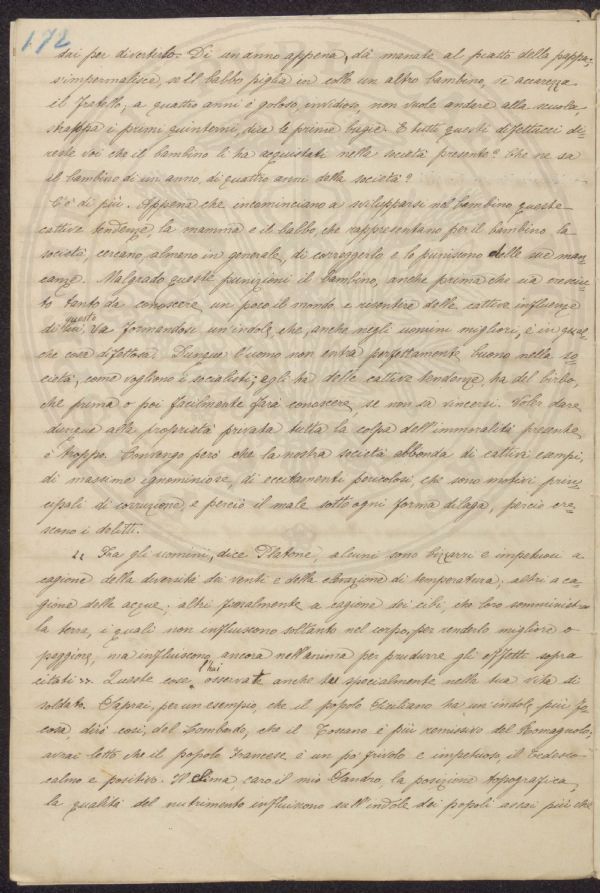 172
dai per divertirlo. Di un anno appena, dà manate al piatto della pappa,
s'impermalisce, se il babbo piglia in collo un altro bambino, se accarezza
il fratello, a quattro anni è goloso, invidioso, non vuole andare alla scuola,
strappa i primi quinterni, dice le prime bugie. E tutti questi difettucci di-
reste voi che il bambino li ha acquistati nelle società presente? Che ne sa
il bambino di un anno, di quattro anni della società?
C'è di più. Appena che incominciano a svilupparsi nel bambino queste
cattive tendenze la mamma e il babbo, che rappresentano per il bambino la
società, cercano, almeno in generale, di correggerlo e lo puniscono delle sue man
canze. Malgrado queste punizioni il bambino, anche prima che sia cresciu
to tanto da conoscere un poco il mondo e risentire delle cattive influenze
di questo, va formandosi un'indole, che, anche negli uomini migliori, è in qual-
che cosa difettosa. Dunque l'uomo non entra perfettamente buono nella so-
cietà, come vogliono i socialisti; egli ha delle cattive tendenze, ha del birbo,
che prima o poi facilmente farà conoscere, se non sa vincersi. Voler dare
dunque alla proprietà privata tutta la colpa dell'immoralità presente,
è troppo. Convengo però che la nostra società abbonda di cattivi esempi,
di massime ignominiose, di eccitamenti pericolosi, che sono motivi prin-
cipali di corruzione, e perciò il male sotto ogni forma dilaga, perciò cre-
scono i delitti.
"Fra gli uomini, dice Platone, alcuni sono bizzarri e impetuosi a
cagione della diversità dei venti e della elevazione di temperatura; altri a ca-
gione delle acque; altri finalmente a cagione dei cibi, che loro somministra
la terra, i quali non influiscono soltanto nel corpo, per renderlo migliore o
peggiore, ma influiscono ancora nell'anima per produrre gli effetti sopra
citati". Queste cose l'hai osservate anche te specialmente nella tua vita di
soldato. Saprai, per un esempio, che il popolo Siciliano ha un'indole più fe
roce, dirò così, del Lombardo, che il Toscano è più remissivo del Romagnolo;
avrai letto che il popolo Francese è un pò frivolo e impetuoso, il Tedesco
calmo e positivo. Il clima, caro il mio Sandro, la posizione topografica,
la qualità del nutrimento influiscono sull'indole dei popoli assai più che